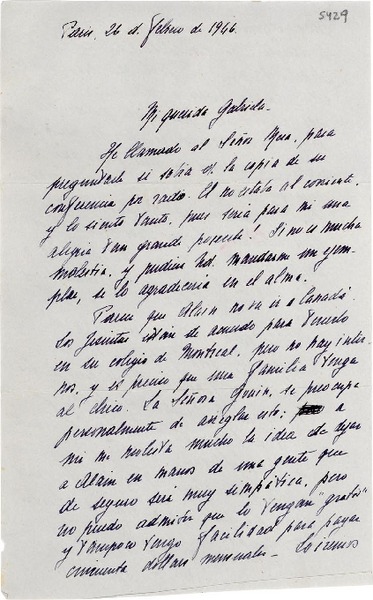 5429
Paris, 26 de Febrero de 1946.
Mi querida Gabriela.
He llamado al Señor Mora, para
preguntarle si sabía de la copia de su
conferencia por radio. El no estaba al corriente,
y lo siento tanto, pues sería para mi una
alegria tan grande poseerla! Si no es mucha
molestia, y pudiera Ud. mandarme un ejem-
plar, se lo agradecería en el alma.
Parece que Alain no va ir a Canadá.
Los Jesuitas están de acuerdo para tenerlo
en su colegio de Montreal, pero no hay inter-
nos, y es preciso que una familia tenga
al chico. La Señora Gouin, se preocupa
personalmente de arreglar esto; a
mi me molesta mucho la idea de dejar
a Alain en manos de una gente que
de seguro será muy simpática, pero
no puedo admitir que lo tengan "gratis"
y tampoco tengo facilidad para pagar
cincuenta dollars mensuales.